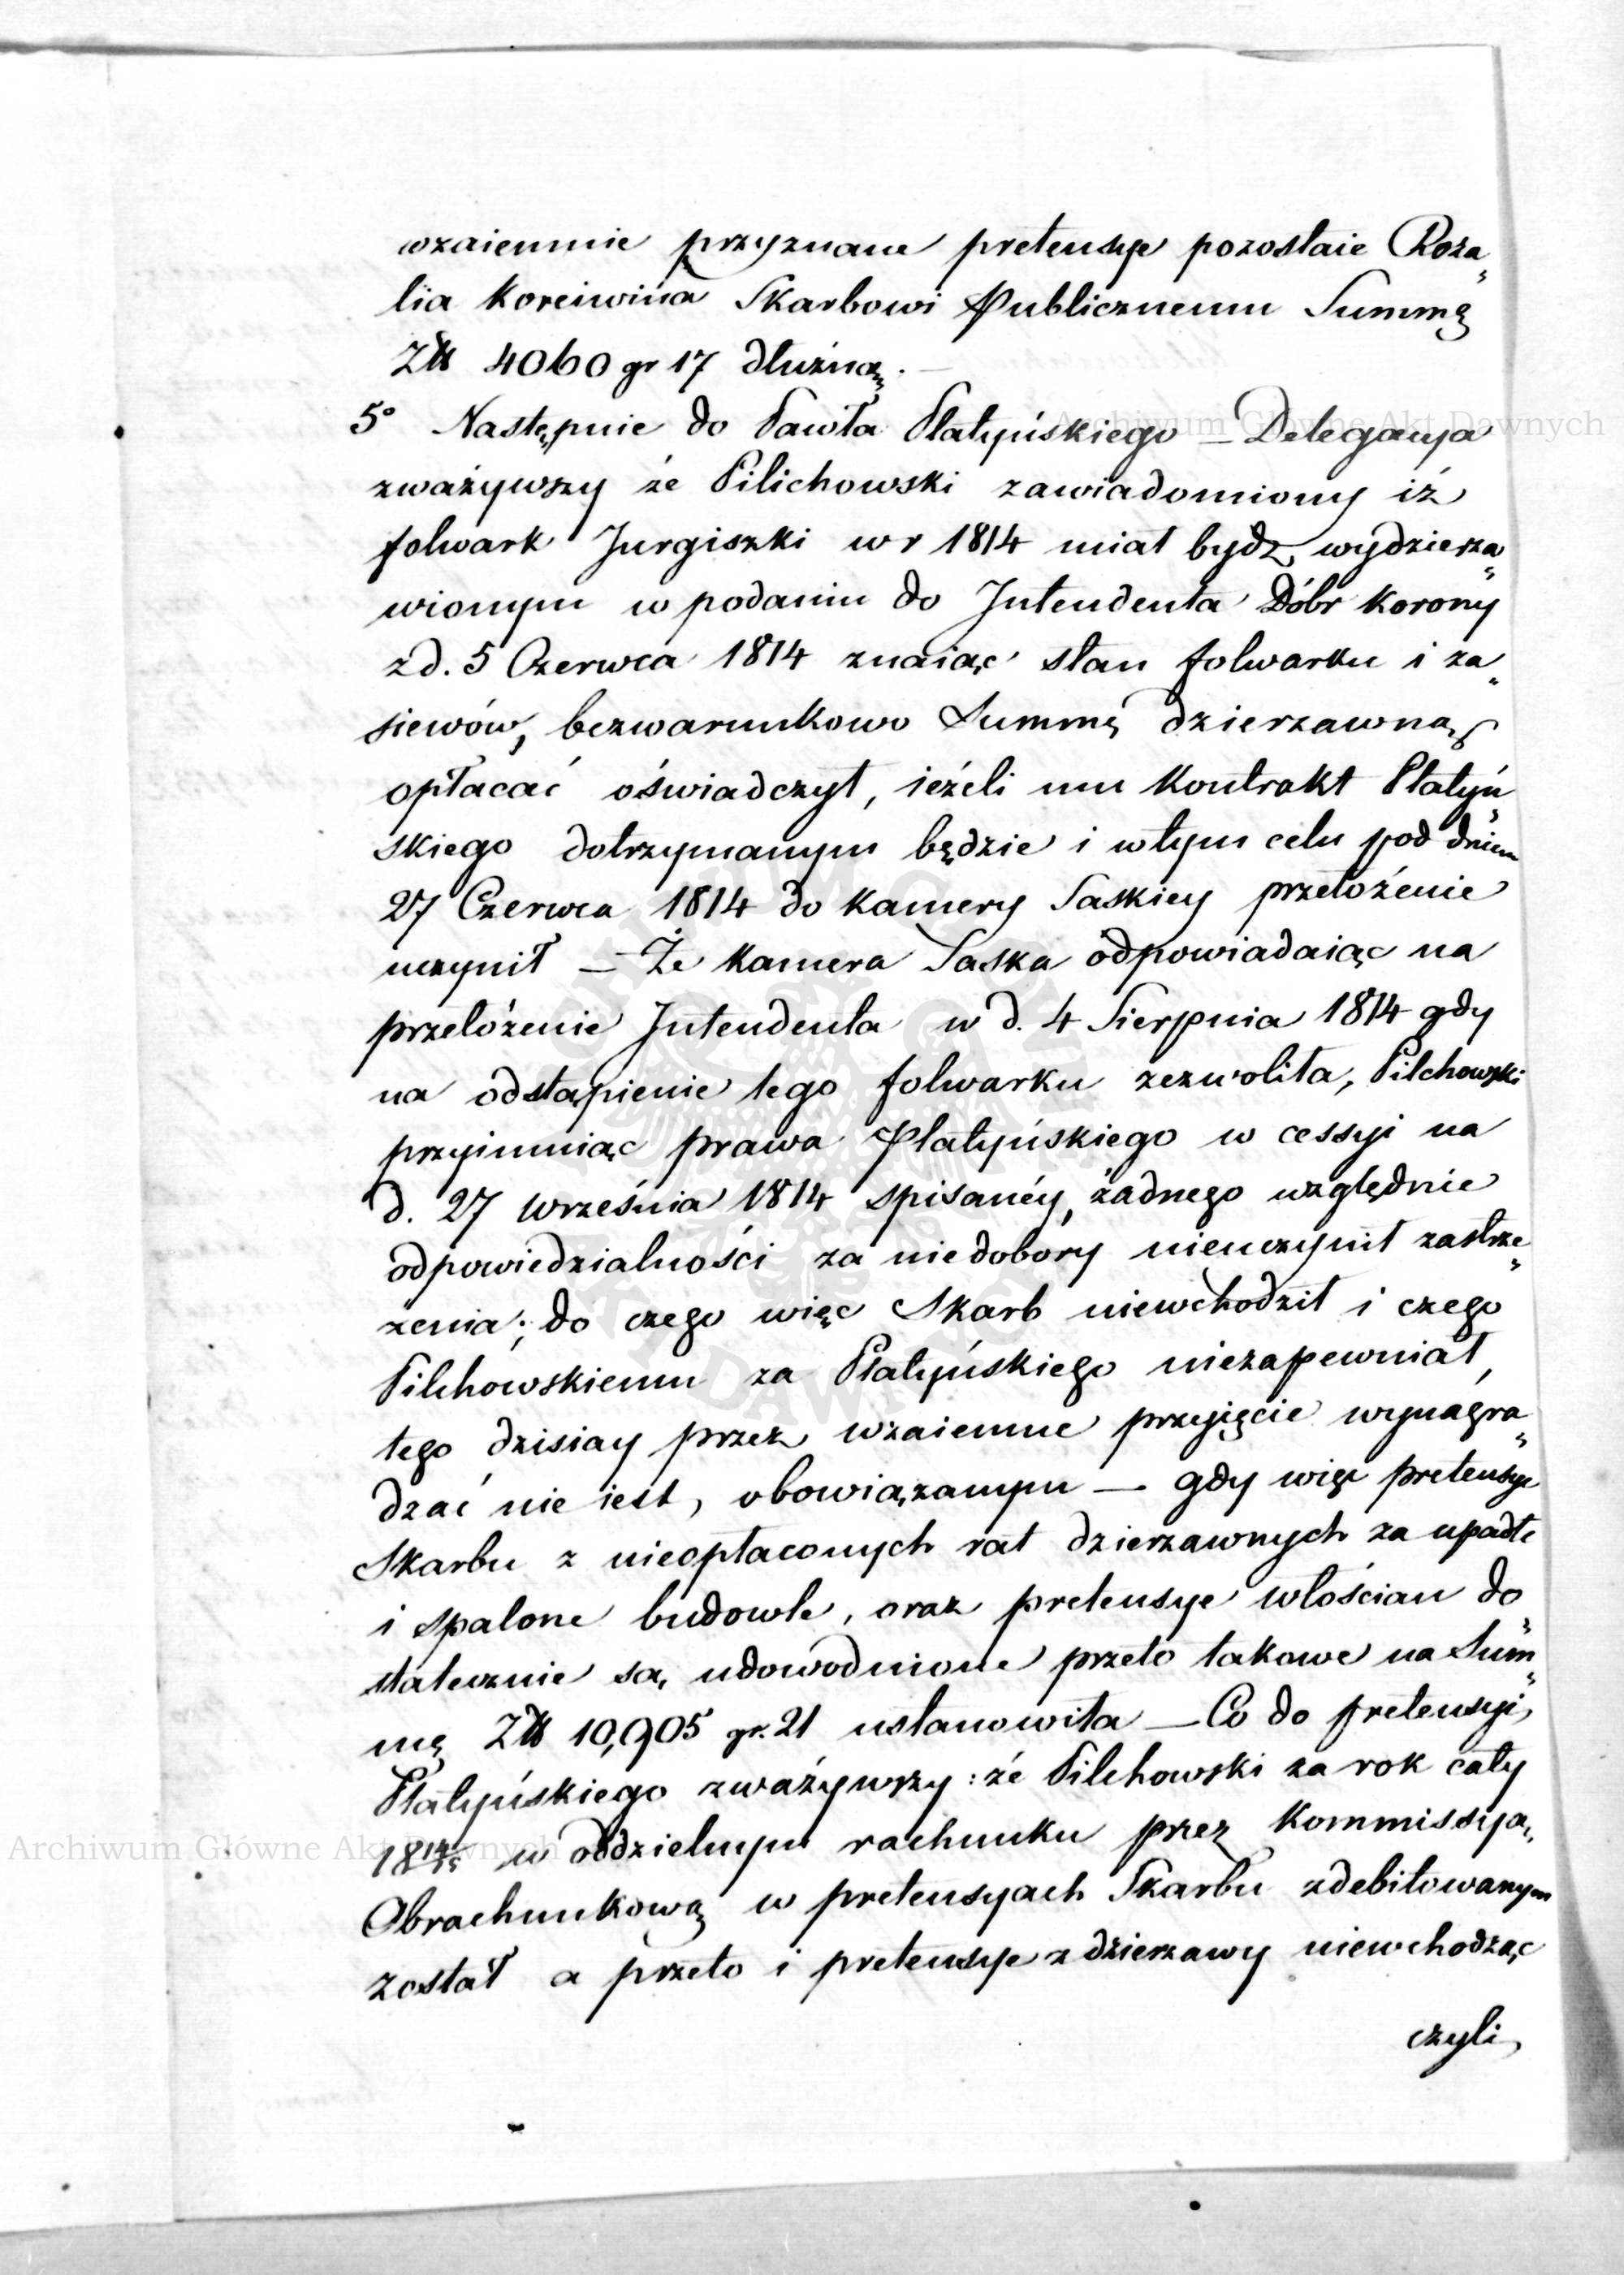 wzaiemnie przyznane pretensye pozostaie Roza„
lia Koreiwina Skarbowi Publicznemu Summę
Złł 4060 gr 17 dłużną. —
5° Następnie do Pawła Płatyńskiego — Delegacya
zważywszy że Pilichowski zawiadomiony iż
folwark Jurgiszki w r 1814 miał bydz wydzierza„
wionym w podaniu do Intendenta Dóbr Korony
z d. 5 Czerwca 1814 znaiąc stan folwarku i za„
siewów, bezwarunkowo Summę dzierzawną
opłacać oświadczył, ieżeli mu Kontrakt Płatyń„
skiego dotrzymanym będzie i w tym celu pod dniem
27 Czerwca 1814 do Kamery Saskiey przełożenie
uczynił — Że Kamera Saska odpowiadaiąc na
przełożenie Intendenta w d. 4 Sierpnia 1814 gdy
na odstąpienie tego folwarku zezwoliła, Pilchowski
przyimuiąc prawa Płatyńskiego w cessyi na
d. 27 Września 1814 spisanéy, żadnego względnie
odpowiedzialności za niedobory nieuczynił zastrze„
żenia; do czego więc Skarb niewchodził i czego
Pilchowskiemu za Płatyńskiego niezapewniał,
tego dzisiay przez wzaiemne przyięcie wynagra„
dzać nie iest, obowiązanym — gdy więc pretensye
Skarbu z nieopłaconych rat dzierzawnych za upadłe
i spalone budowle, oraz pretensye włościan do„
statecznie są, udowodnione przeto takowe na Sum„
mę Złł 10,905 gr. 21 ustanowiła — Co do pretensyi
Płatyńskiego zważywszy: że Pilchowski za rok cały
1814/15 w oddzielnym rachunku przez Kommissyą
Obrachunkową w pretensyach Skarbu zdebitowanym
został a przeto i pretensye z dzierzawy niewchodząc
czyli
Archiwum Główne Akt Dawnych
Archiwum Główne Akt Dawnych